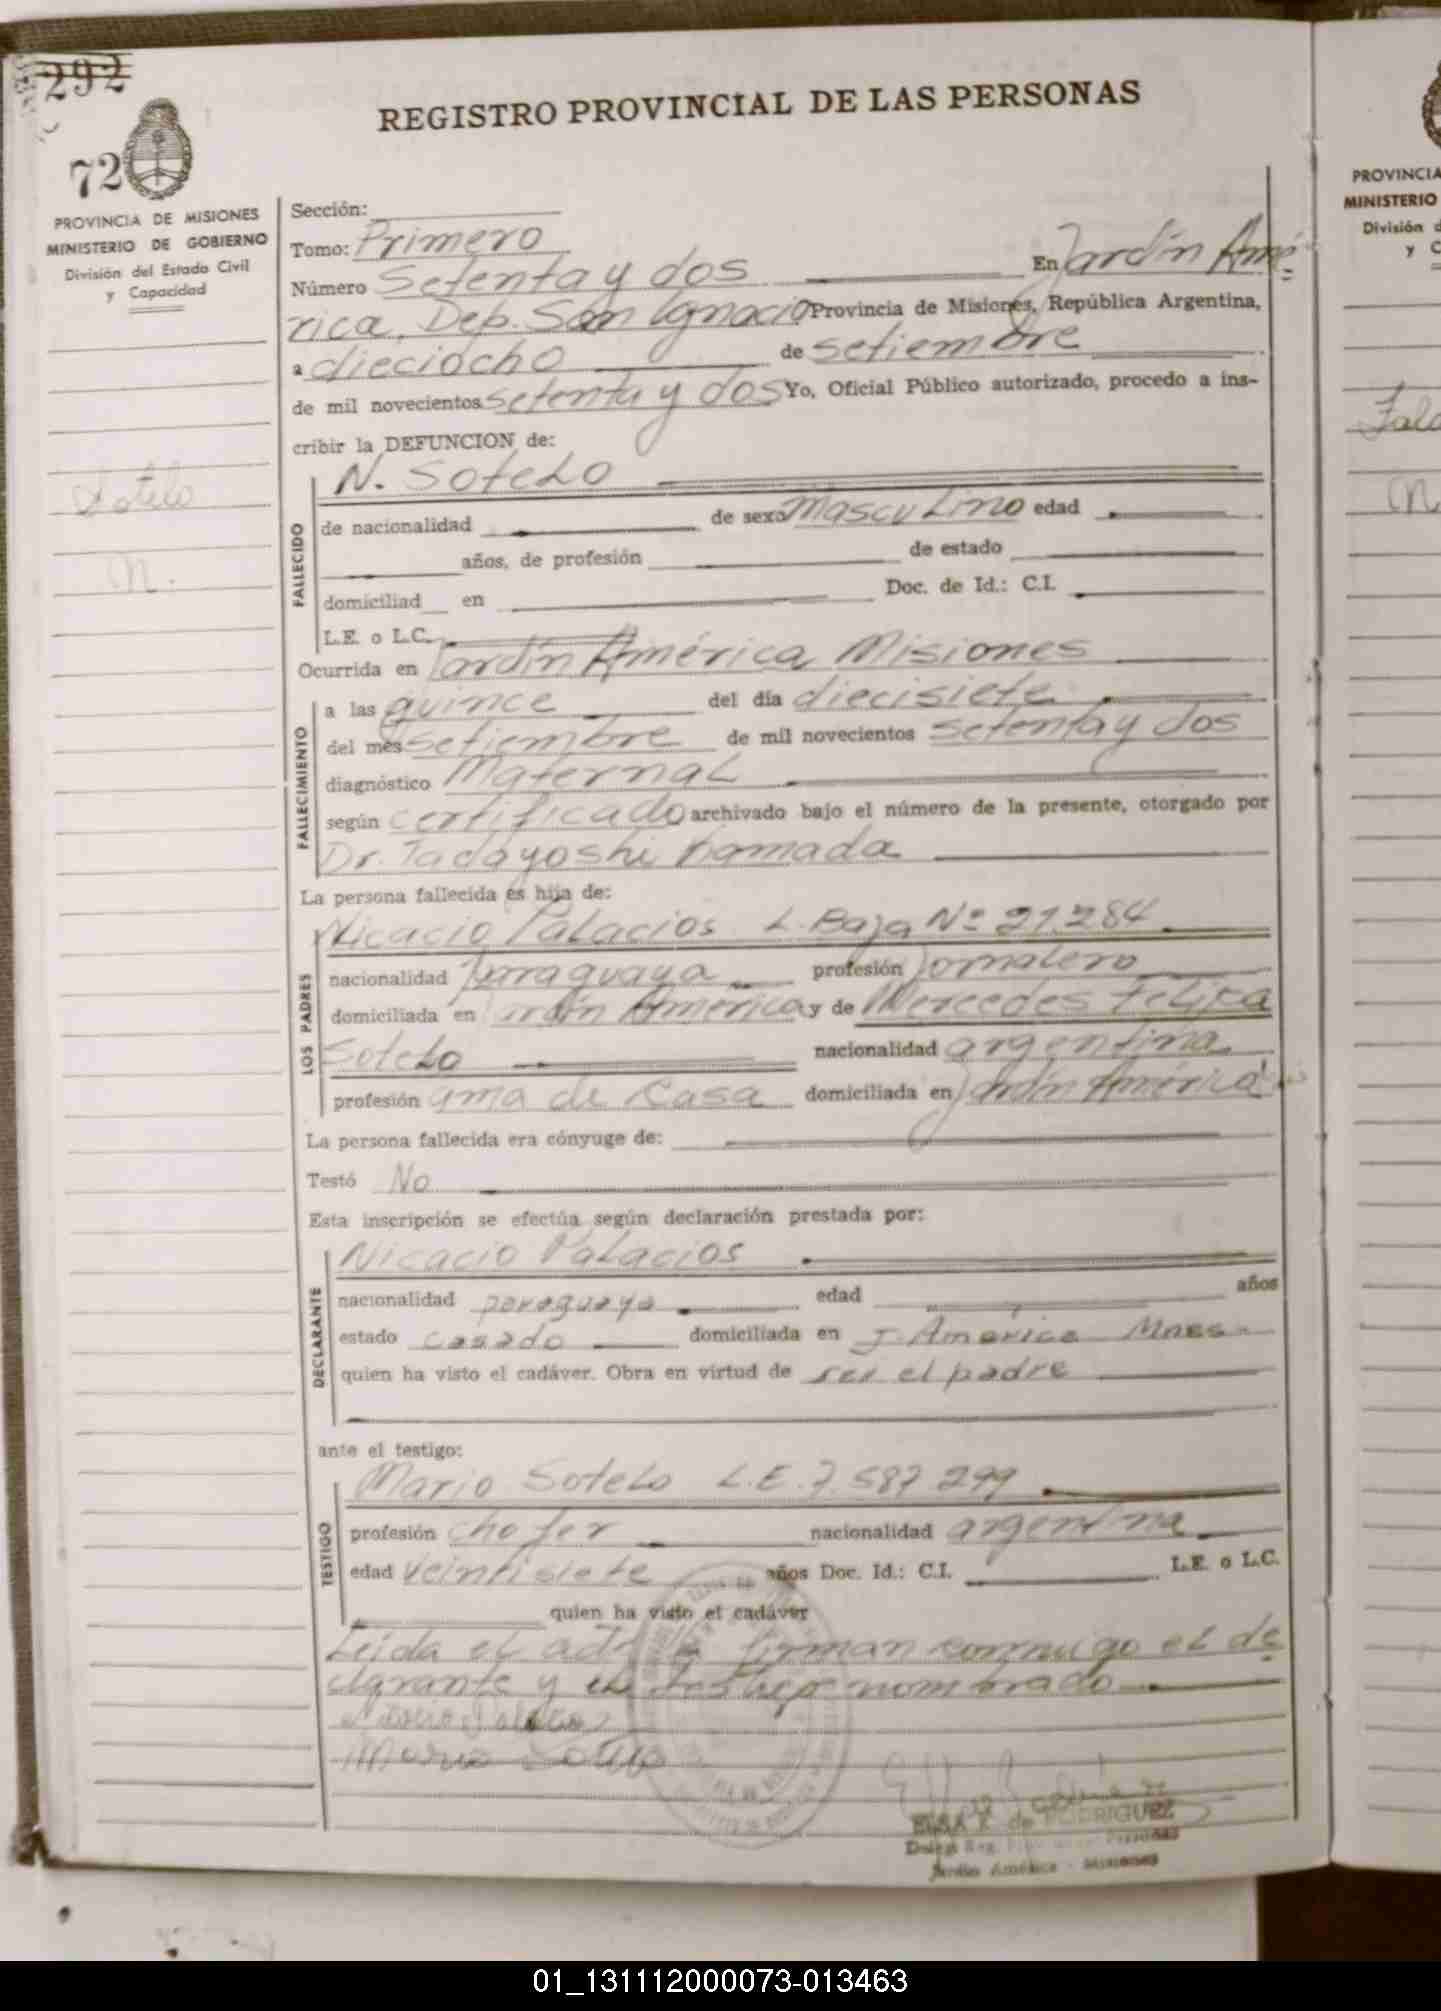 292
72
REGISTRO PROVINCIAL DE LAS PERSONAS
PROVINCIA DE MISIONES
MINISTERIO DE GOBIERNO
División del Estado Civil
y Capacidad
Sotelo
N.
Sección:
Tomo: Primero
Número Setenta y dos En Jardín Amé=
rica, Dep. San Ignacio Provincia de Misiones, República Argentina,
a dieciocho de setiembre
de mil novecientos setenta y dos Yo, Oficial Público autorizado, procedo a ins-
cribir la DEFUNCION de:
FALLECIDO
N. Sotelo
de nacionalidad de sexo Masculino edad
años, de profesión de estado
domiciliad en Doc. de Id.: C.I.
L.E. o L.C.
Ocurrida en Jardín América Misiones
FALLECIMIENTO
a las quince del día diecisiete
del mes setiembre de mil novecientos setenta y dos
diagnóstico Maternal
según certificado archivado bajo el número de la presente, otorgado por
Dr. Tadayoshi Kamada
La persona fallecida es hija de:
LOS PADRES
Nicacio Palacios L. Baja Nº 21.284
nacionalidad Paraguaya profesión Jornalero
domiciliada en Jardín América y de Mercedes Felisa
Sotelo nacionalidad argentina
profesión ama de casa domiciliada en Jardín América
La persona fallecida era cónyuge de:
Testó No
Esta inscripción se efectúa según declaración prestada por:
DECLARANTE
Nicacio Palacios
nacionalidad paraguaya edad años
estado casado domiciliada en J. América Mnes
quien ha visto el cadáver. Obra en virtud de ser el padre
ante el testigo:
TESTIGO
Mario Sotelo L.E. 7.587.299
profesión chofer nacionalidad argentina
edad veintisiete años Doc. Id.: C.I. L.E. o L.C.
quien ha visto el cadáver
Leída el acta la firman conmigo el de=
clarante y el testigo nombrado
Mario Sotelo
ELSA de RODRIGUEZ
Jardín América - Misiones
PROVINCIA
MINISTERIO
División d
y C
01_131112000073-013463